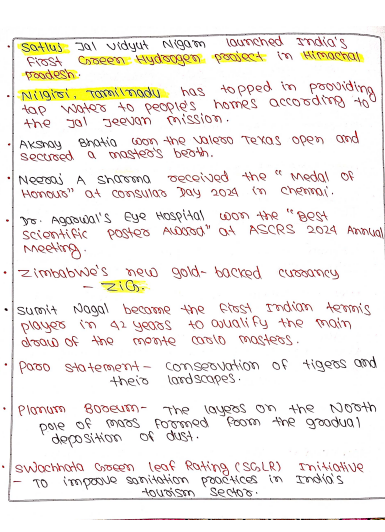 • Satluj Jal Vidyut Nigam launched India's
First Green Hydrogen project in Himachal
Pradesh.
• Nilgiri, Tamilnadu has topped in providing
tap water to people's homes according to
the Jal Jeevan mission.
• Akshay Bhatia won the Valero Texas open and
secured a master's berth.
• Neeraj A Sharma received the "Medal of
Honour" at consular Day 2024 in Chennai.
• Dr. Agarwal's Eye Hospital won the "Best
Scientific poster Award" at ASCRS 2024 Annual
Meeting.
• Zimbabwe's new gold-backed currancy
- ZiG.
• Sumit Nagal became the first Indian tennis
player in 42 years to qualify the main
draw of the monte carlo masters.
• Paro statement - conservation of tigers and
their landscapes.
• Planum Boreum - The layers on the North
pole of mars formed from the gradual
deposition of dust.
• Swachhata Green Leaf Rating (SGLR) Initiative
- To improve sanitation practices in India's
tourism sector.